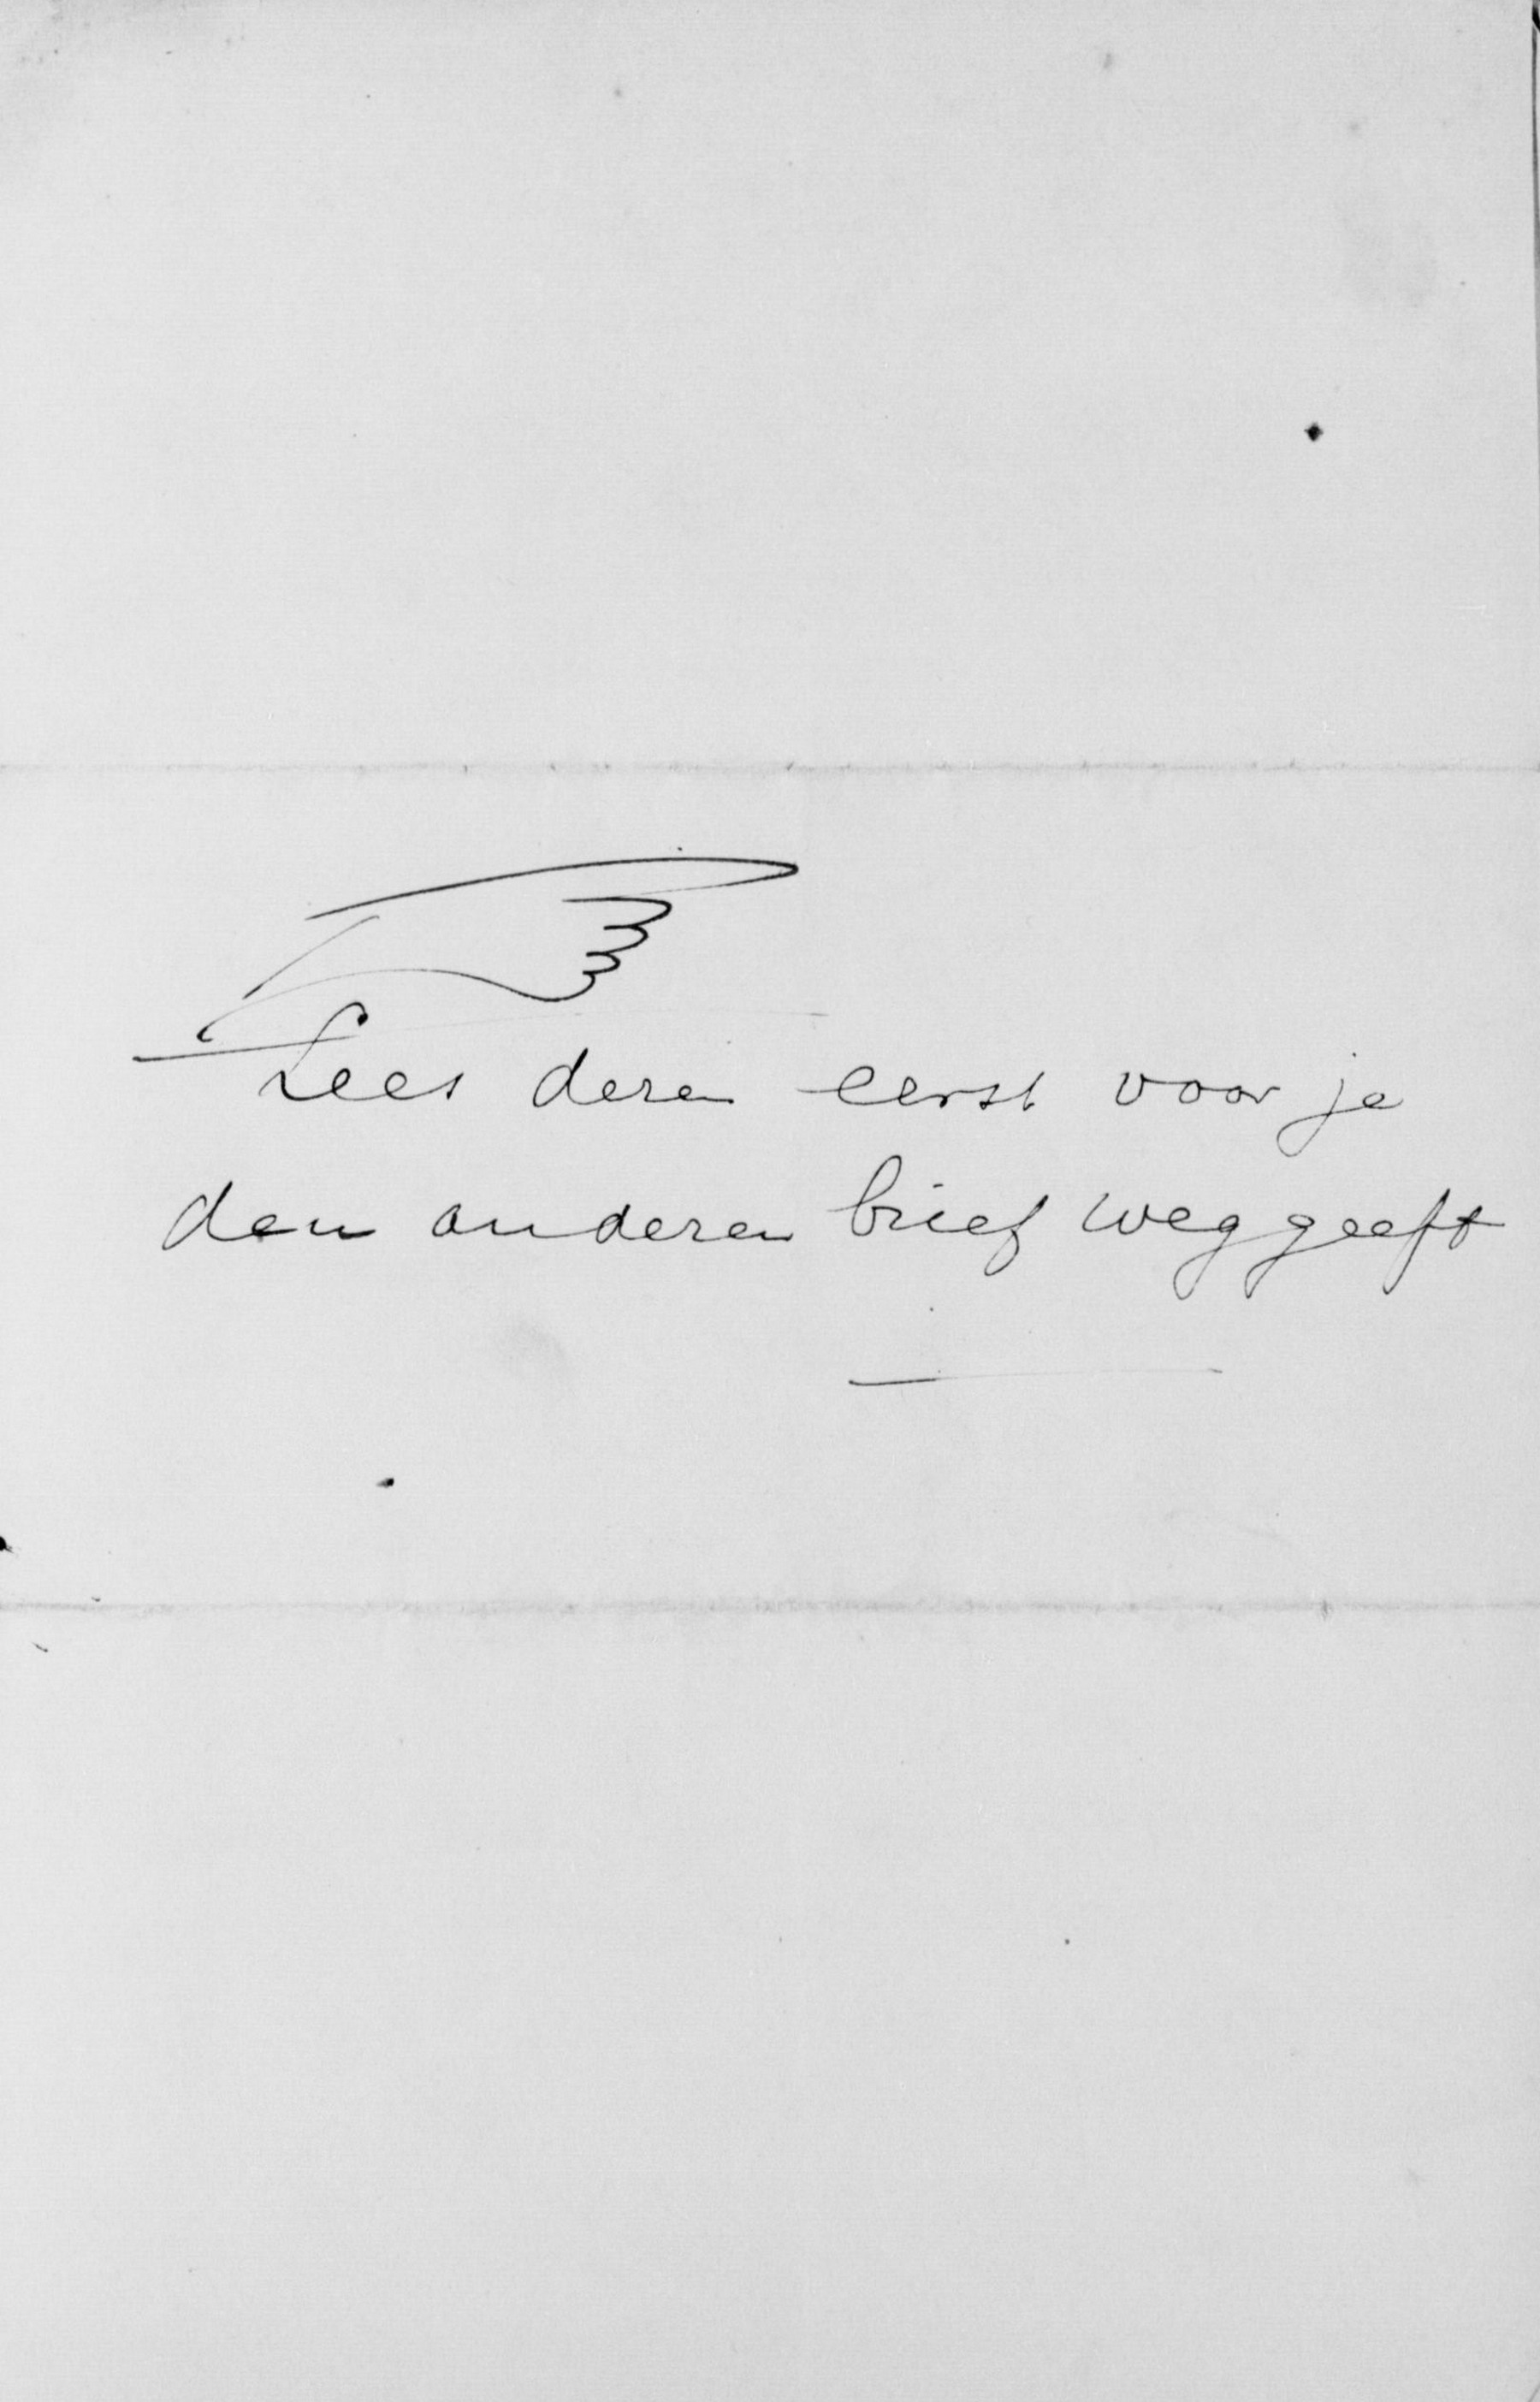 Lees dezen eerst voor je
den anderen brief weggeeft